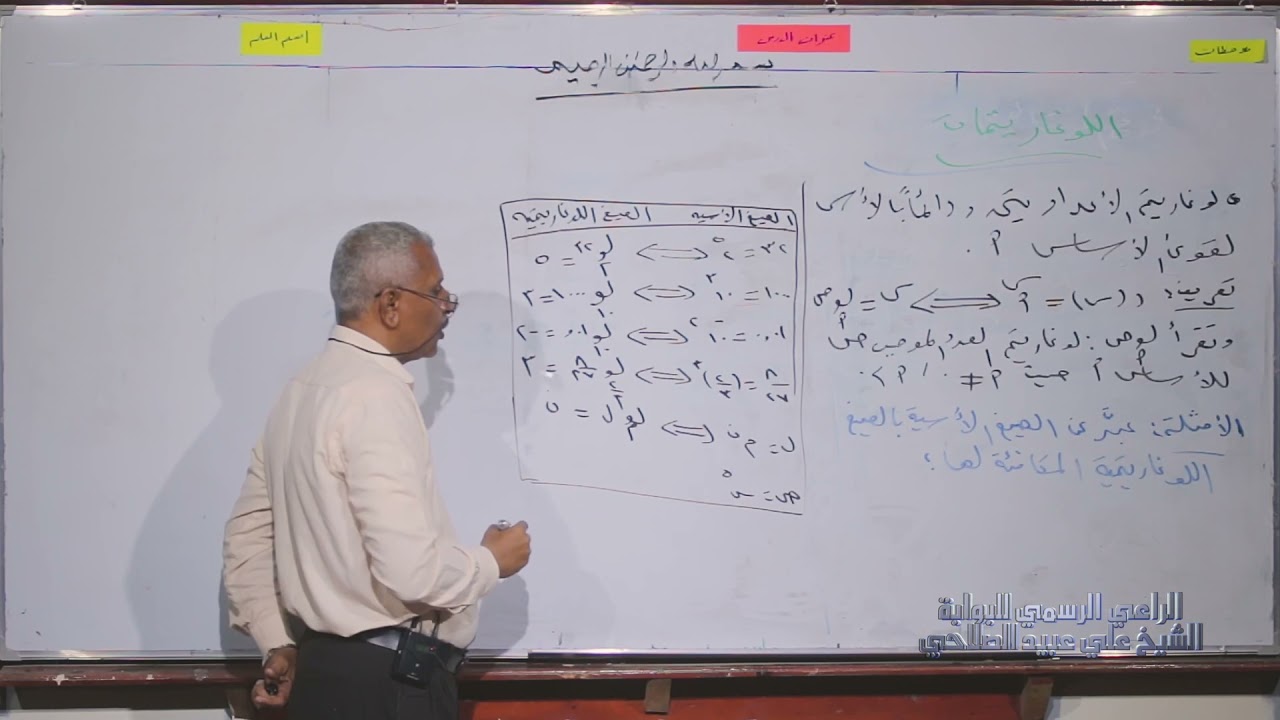 ملاحظات
عنوان الدرس
اسم المعلم
بسم الله الرحمن الرحيم
اللوغاريتمات
لوغاريتم الأعداد يتحدد دائماً بالأسس
لقوى الأساس أ.
تعريف: د(س) = أ^س ⟺ س = لو_أ ص
وتقرأ لو_أ ص: لوغاريتم العدد الموجب ص
للأساس أ حيث أ ≠ ١ / أ > ٠
الأمثلة: عبّر عن الصيغ الأسية بالصيغ
اللوغاريتمية المكافئة لها:
الصيغ الأسية الصيغ اللوغاريتمية
٣٢ = ٢^٥ ⟺ لو_٢ ٣٢ = ٥
١٠٠٠ = ١٠^٣ ⟺ لو_١٠ ١٠٠٠ = ٣
٠.٠١ = ١٠^-٢ ⟺ لو_١٠ ٠.٠١ = -٢
٨/٢٧ = (٢/٣)^٣ ⟺ لو_٢/٣ ٨/٢٧ = ٣
ل = م^ن ⟺ لو_م ل = ن
ص = س^٥
الراعي الرسمي للبوابة
الشيخ علي عبيد الصلاحي